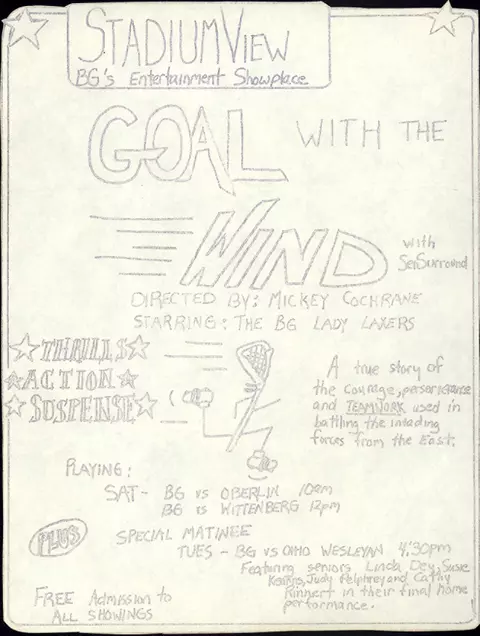 STADIUMVIEW
BG's Entertainment Showplace
GOAL WITH THE
WIND
with
SenSurround
DIRECTED BY: MICKEY COCHRANE
STARRING: THE BG LADY LAXERS
THRILLS
ACTION
SUSPENSE
A true story of
the courage, perserverance
and TEAMWORK used in
battling the invading
forces from the East.
PLAYING:
SAT- BG vs OBERLIN 10am
BG vs WITTENBERG 12pm
PLUS
SPECIAL MATINEE
TUES - BG vs OHIO WESLEYAN 4:30pm
Featuring seniors Linda Dey, Susie
Judy and Cathy
in their final home
performance.
FREE Admission to
ALL SHOWINGS